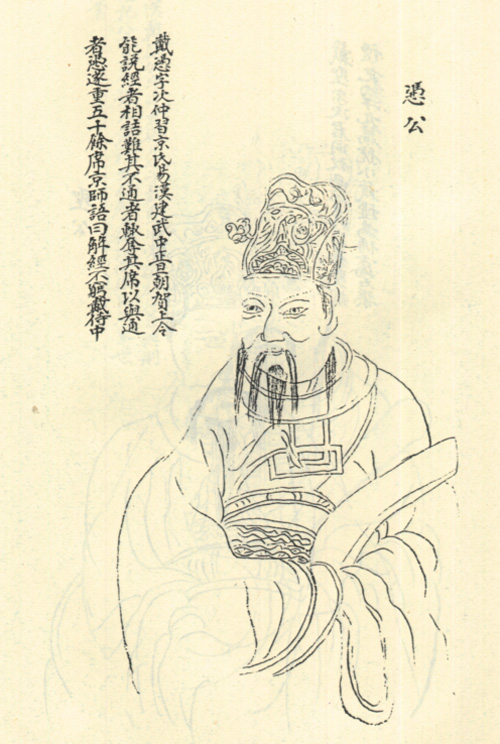 憑公
戴憑字次仲習京氏易漢建武中正旦朝賀上令
能説經者相詰難其不通者輙奪其席以與通
者憑遂重五十餘席京師語曰解經不窮戴侍中